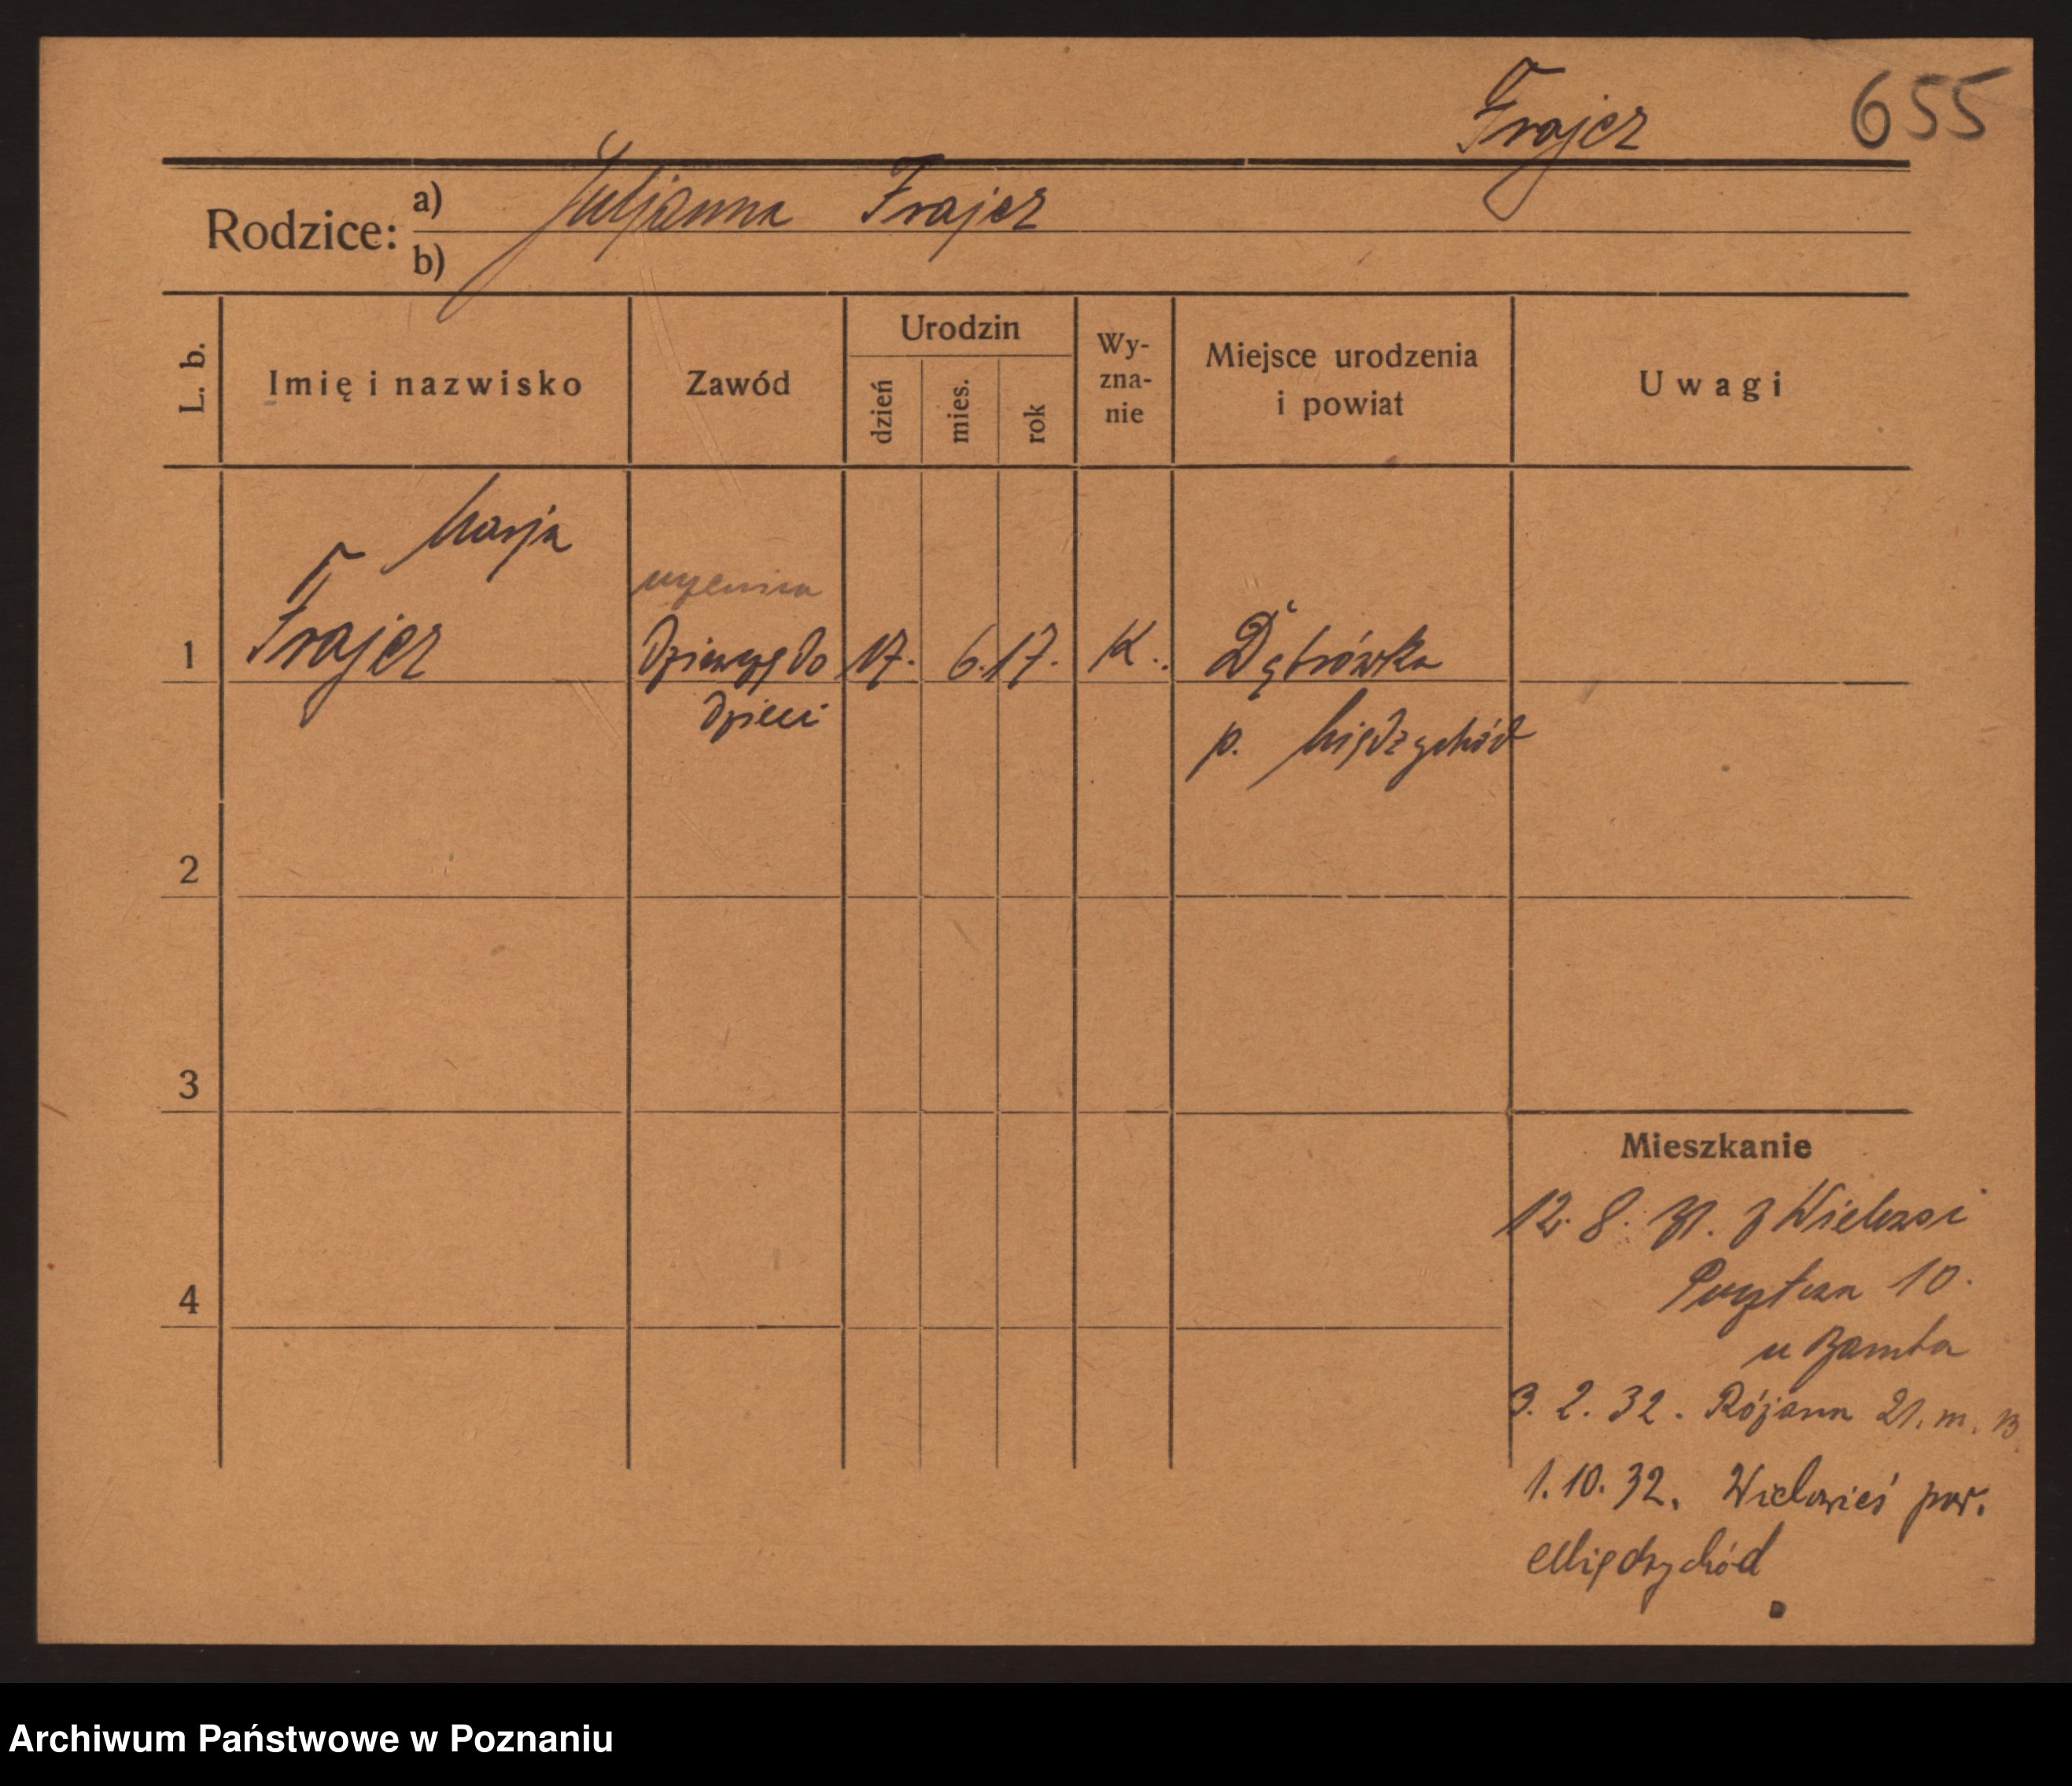 Frajer 655
Rodzice: a) Juljanna Frajer
b)
L. b. Imię i nazwisko Zawód Urodzin dzień mies. rok Wy-zna-nie Miejsce urodzenia i powiat Uwagi
Marja
uczenica
1 Frajer Dziewczę do 17. 6. 17. K. Dąbrówka
dzieci p. Międzychód
2
3
Mieszkanie
12. 8. 31. z Wielewsi
4 Pocztowa 10.
u
3. 2. 32. Różana 21. m. 13
1. 10. 32. Wielowieś pow.
Międzychód
Archiwum Państwowe w Poznaniu